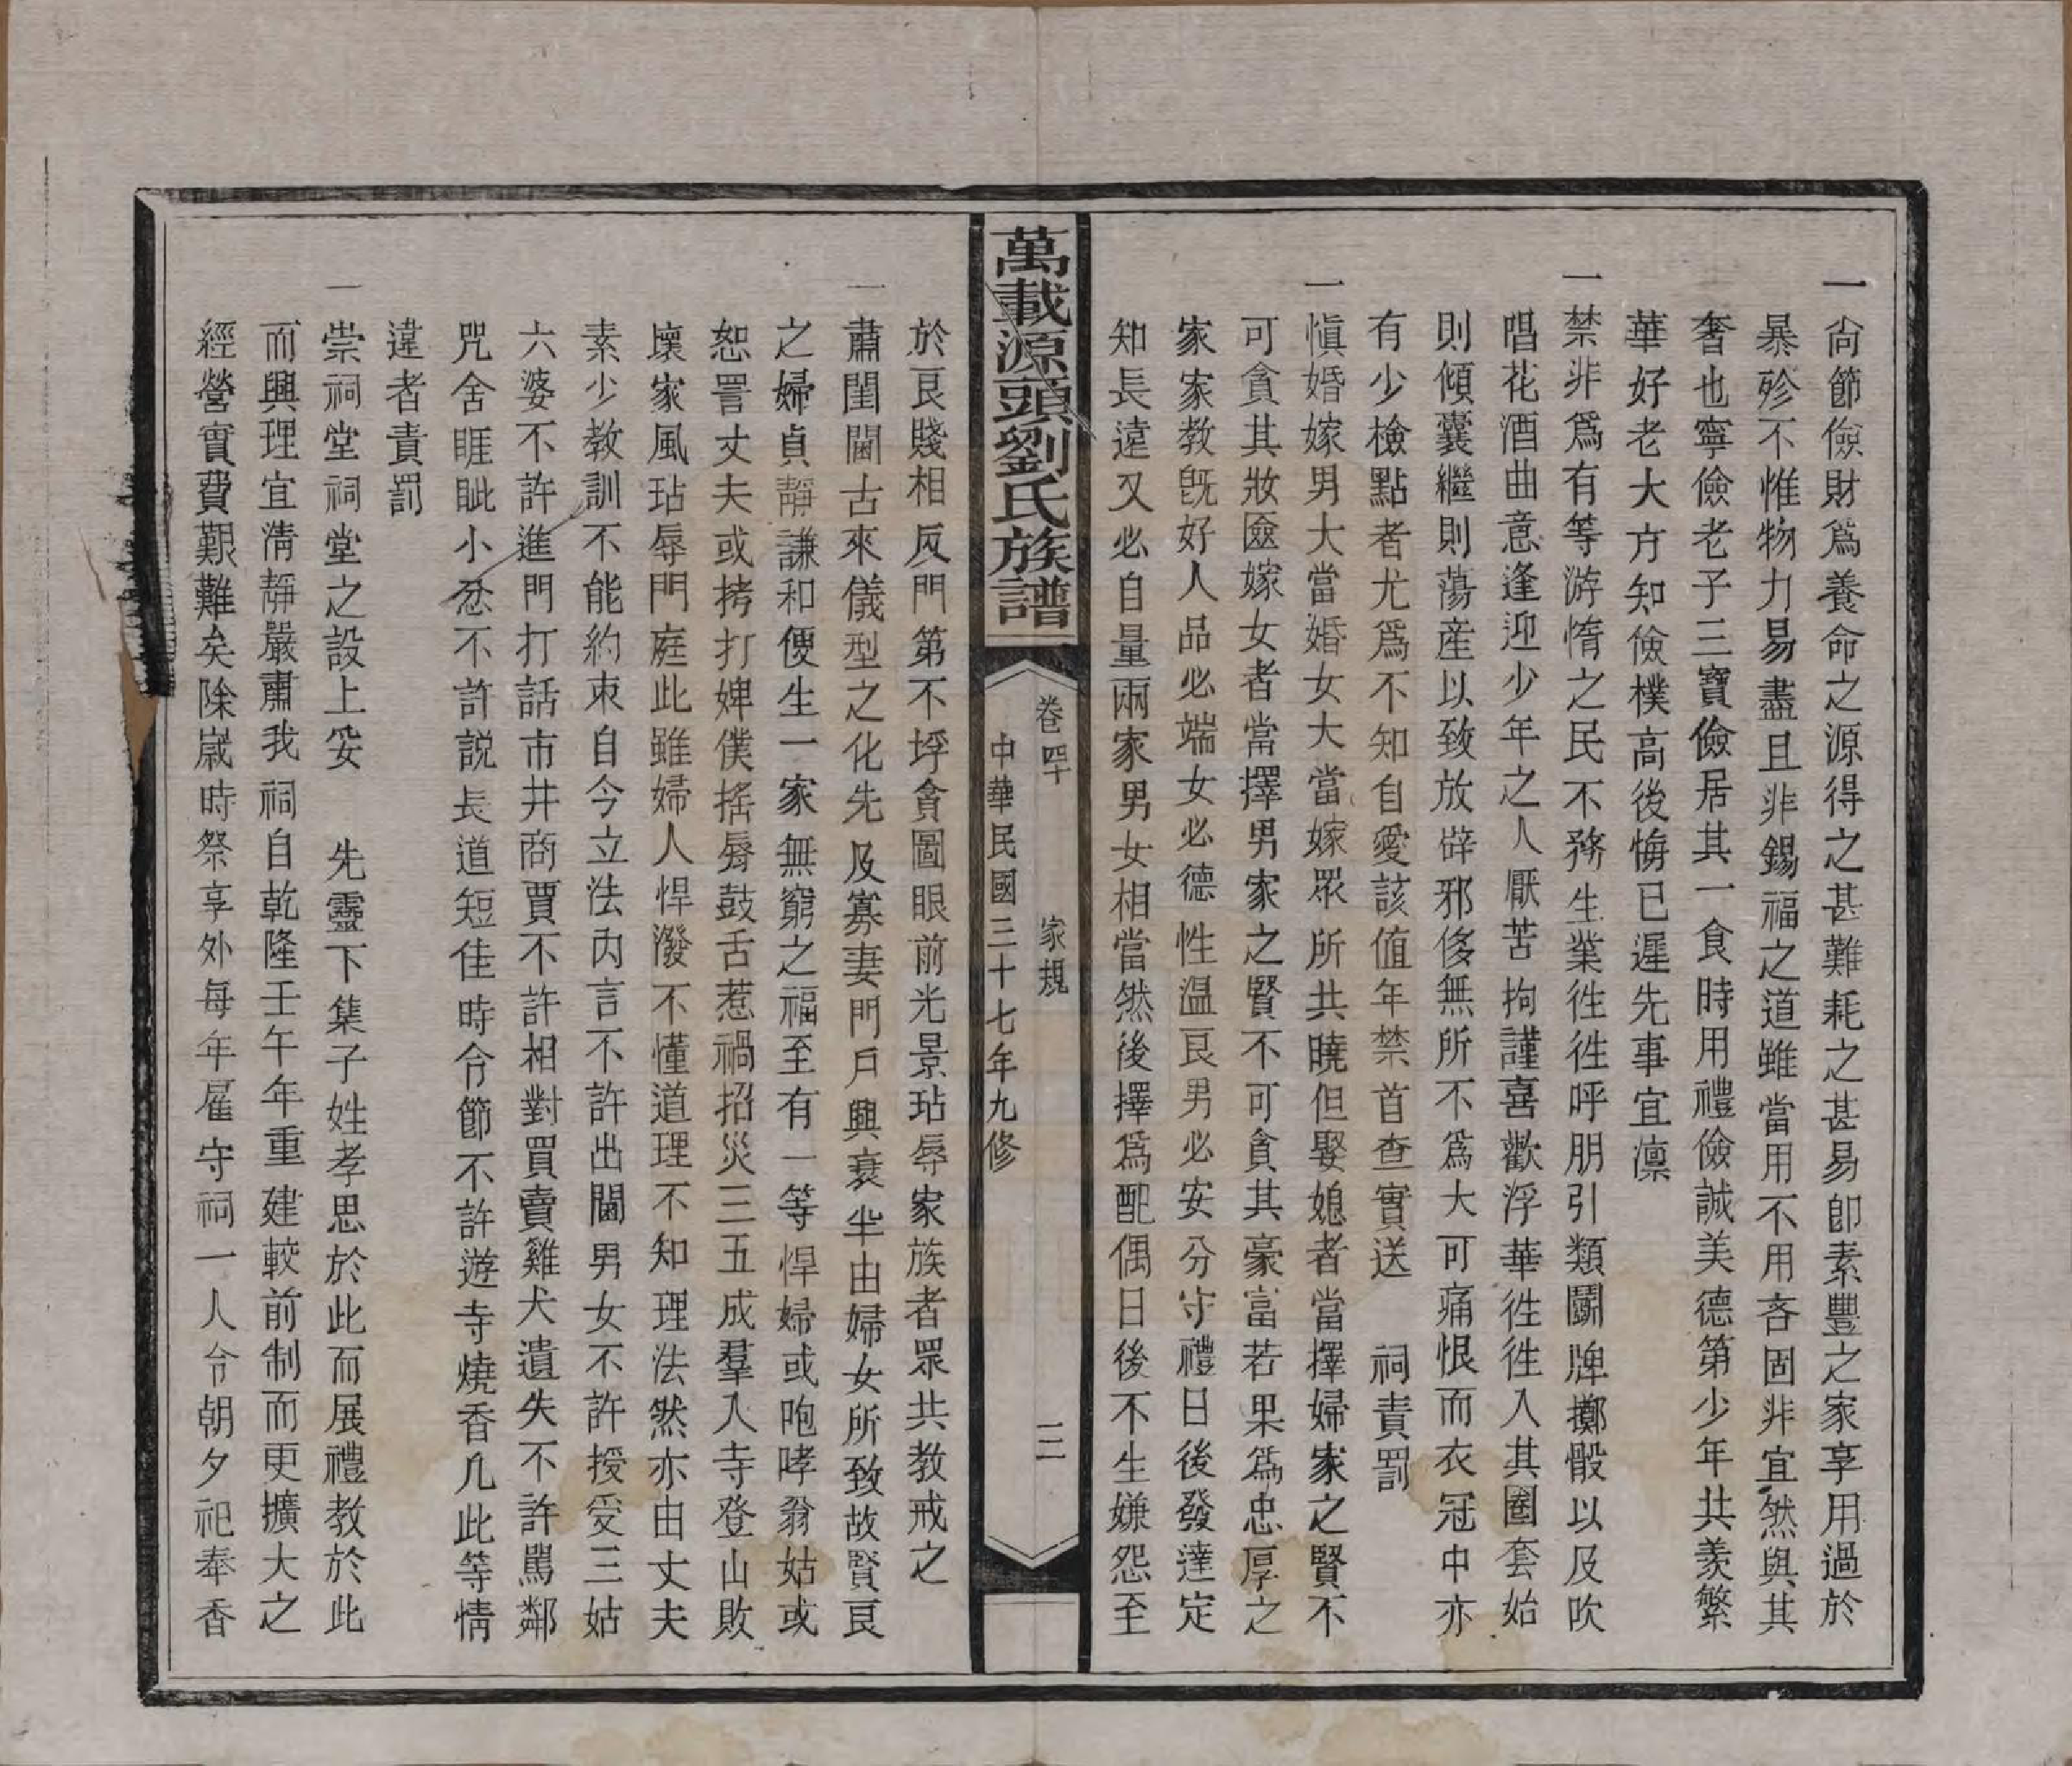 一尙節儉財爲養命之源得之甚難耗之甚易卽素豐之家享用過於
暴殄不惟物力易盡且非錫福之道雖當用不用吝固非宜然與其
奢也寧儉老子三寶儉居其一食時用禮儉誠美德第少年共羨繁
華好老大方知儉樸高後悔已遲先事宜凛
一禁非爲有等游惰之民不務生業徃徃呼朋引類鬭牌擲骰以及吹
唱花酒曲意逢迎少年之人厭苦拘謹喜歡浮華徃徃入其圈套始
則傾囊繼則蕩産以致放辟邪侈無所不爲大可痛恨而衣冠中亦
有少檢點者尤爲不知自愛該值年禁首查實送　祠責罰
一愼婚嫁男大當婚女大當嫁眾所共曉但娶媳者當擇婦家之賢不
可貪其妝匳嫁女者當擇男家之賢不可貪其豪富若果爲忠厚之
家家教旣好人品必端女必德性温良男必安分守禮日後發達定
知長遠又必自量兩家男女相當然後擇爲配偶日後不生嫌怨至
萬載源頭劉氏族譜
卷四十　家規　三
中華民國三十七年九修
於良賤相反門第不埒貪圖眼前光景玷辱家族者眾共教戒之
一肅閨閫古來儀型之化先及寡妻門戶興衰半由婦女所致故賢良
之婦貞靜謙和便生一家無窮之福至有一等悍婦或咆哮翁姑或
恕詈丈夫或拷打婢僕搖脣鼓舌惹禍招災三五成羣入寺登山敗
壞家風玷辱門庭此雖婦人悍潑不懂道理不知理法然亦由丈夫
素少教訓不能約束自今立法內言不許出閫男女不許授受三姑
六婆不許進門打話市井商賈不許相對買賣雞犬遺失不許罵鄰
咒舍睚眦小忿不許説長道短佳時令節不許遊寺燒香凡此等情
違者責罰
一崇祠堂祠堂之設上妥　先靈下集子姓孝思於此而展禮教於此
而興理宜淸靜嚴肅我祠自乾隆壬午年重建較前制而更擴大之
經營實費艱難矣除嵗時祭享外每年雇守祠一人令朝夕祀奉香